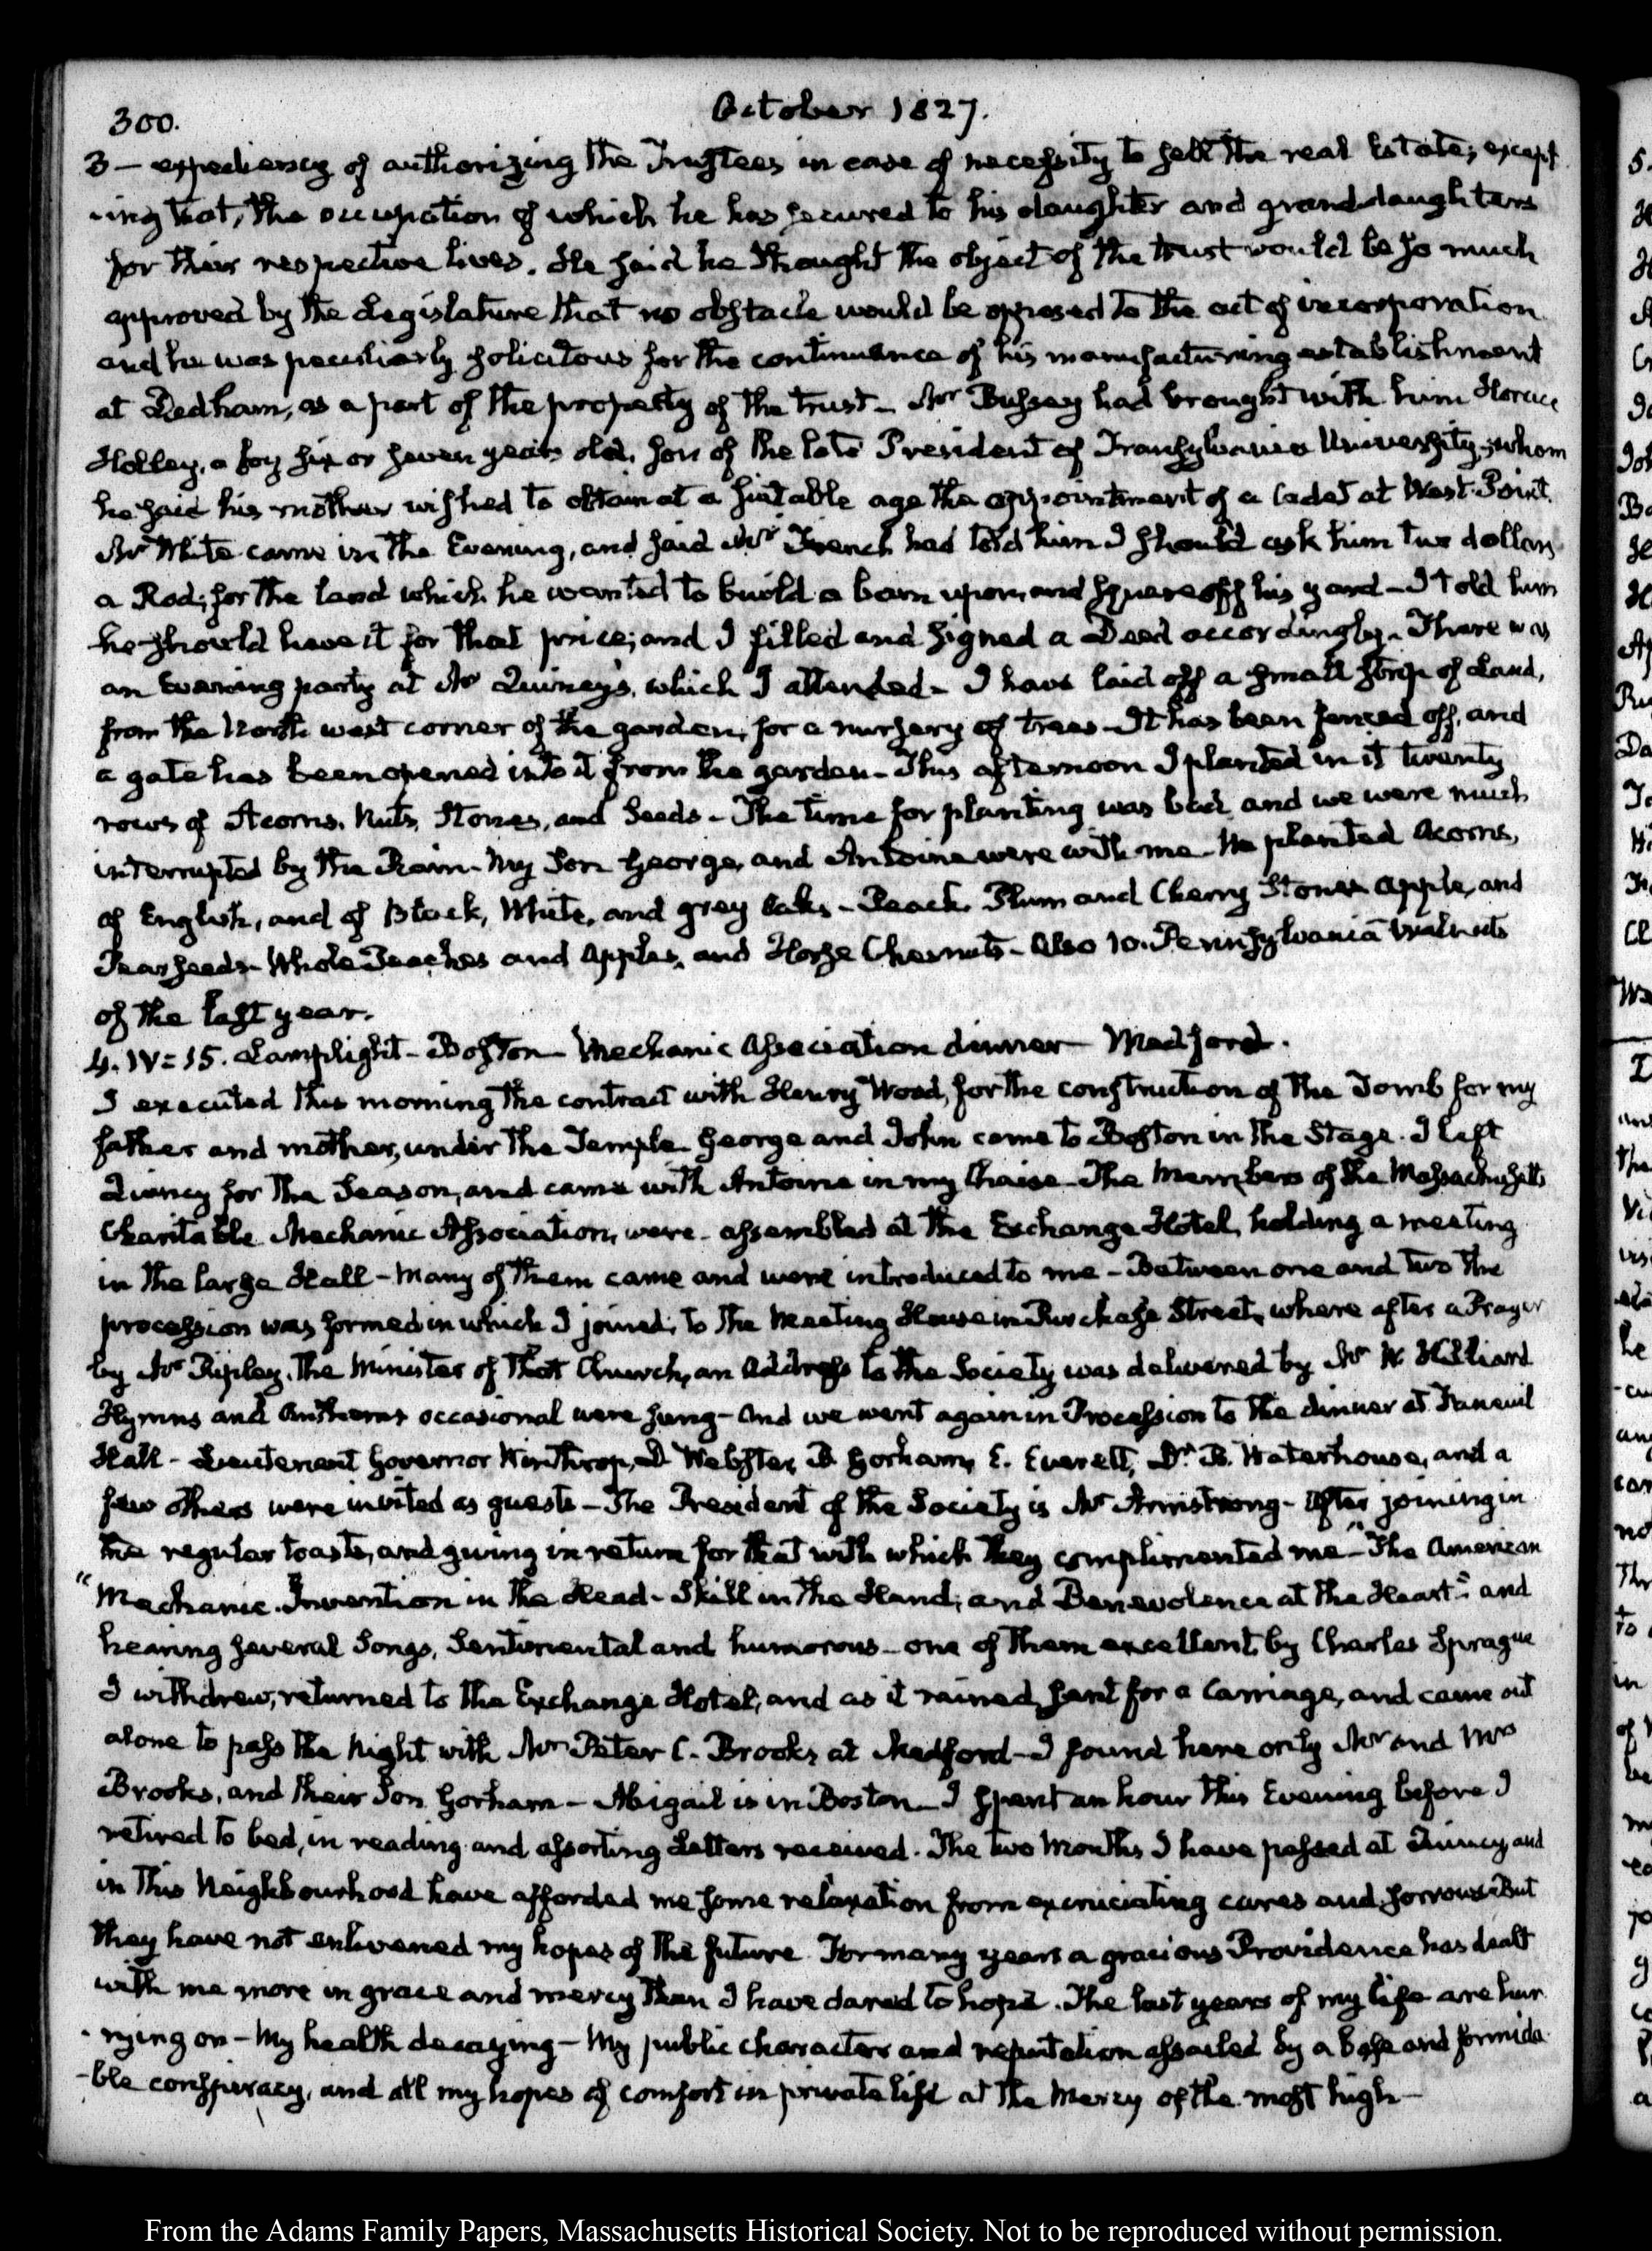 300.
October 1827.
3 — expediency of authorizing the Trustees in case of necessity to sell the real Estate; except
-ing that, the occupation of which he has secured to his daughter and granddaughters
for their respective lives. He said he thought the object of the trust would be so much
approved by the Legislature that no obstacle would be opposed to the act of incorporation
and he was peculiarly solicitous for the continuance of his manufacturing establishment
at Dedham, as a part of the property of the trust — Mr Bussey had brought with him Horace
Holley, a boy six or seven years old, son of the late President of Transylvania University, whom
he said his mother wished to obtain at a suitable age the appointment of a Cadet at West-Point.
Mr White came in the Evening, and said Mr French had told him I should ask him two dollars
a Rod, for the land which he wanted to build a barn upon, and square off his yard — I told him
he should have it for that price; and I filled and signed a Deed accordingly. There was
an Evening party at Mr Quincy's, which I attended — I have laid off a small strip of Land,
from the North west corner of the garden, for a nursery of trees — It has been fenced off, and
a gate has been opened into it from the garden — This afternoon I planted in it twenty
rows of Acorns, Nuts, Stones, and Seeds — The time for planting was bad, and we were much
interrupted by the Rain — My Son George, and Antoine were with me — We planted Acorns,
of English, and of Black, White, and grey Oaks — Peach, Plum and Cherry Stones Apple, and
Pear seeds — Whole Peaches and Apples, and Horse Chesnuts — Also 10. Pennsylvania Walnuts
of the last year.
4. IV=15. Lamplight — Boston — Mechanic Association dinner — Medford.
I executed this morning the contract with Henry Wood, for the construction of the Tomb for my
father and mother, under the Temple. George and John came to Boston in the Stage. I left
Quincy for the Season, and came with Antoine in my Chaise — The Members of the Massachusetts
Charitable Mechanic Association, were assembled at the Exchange Hotel, holding a meeting
in the large Hall — Many of them came and were introduced to me — Between one and two the
procession was formed in which I joined, to the Meeting House in Purchase Street, where after a Prayer
by Mr Ripley, the Minister of that Church, an Address to the Society was delivered by Mr W. Hilliard
Hymns and Anthems occasional were sung — And we went again in Procession to the dinner at Faneuil
Hall — Lieutenant Governor Winthrop, D. Webster, B. Gorham, E. Everett, Dr. B. Waterhouse, and a
few others were invited as guests — The President of the Society is Mr Armstrong — After joining in
the regular toasts, and giving in return for that with which they complimented me — "The American
"Mechanic. Invention in the Head — Skill in the Hand, and Benevolence at the Heart" and
hearing several Songs, Sentimental and humorous — one of them excellent by Charles Sprague
I withdrew, returned to the Exchange Hotel, and as it rained, sent for a Carriage, and came out
alone to pass the Night with Mr Peter C. Brooks at Medford — I found here only Mr and Mrs
Brooks, and their Son Gorham — Abigail is in Boston — I spent an hour this Evening before I
retired to bed, in reading and assorting Letters received. The two Months I have passed at Quincy and
in this Neighbourhood have afforded me some relaxation from excruciating cares and sorrows. But
they have not enlivened my hopes of the future. For many years a gracious Providence has dealt
with me more in grace and mercy than I have dared to hope. The last years of my life are hur
-rying on — My health decaying — My public character and reputation assailed by a base and formida
-ble conspiracy, and all my hopes of comfort in private life at the Mercy of the most high —
From the Adams Family Papers, Massachusetts Historical Society. Not to be reproduced without permission.